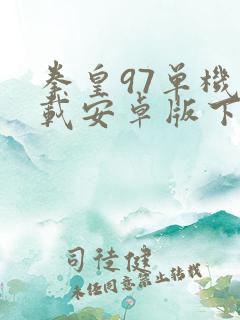 拳皇97单機
載安卓版下
司徒健
未经同意禁止转载